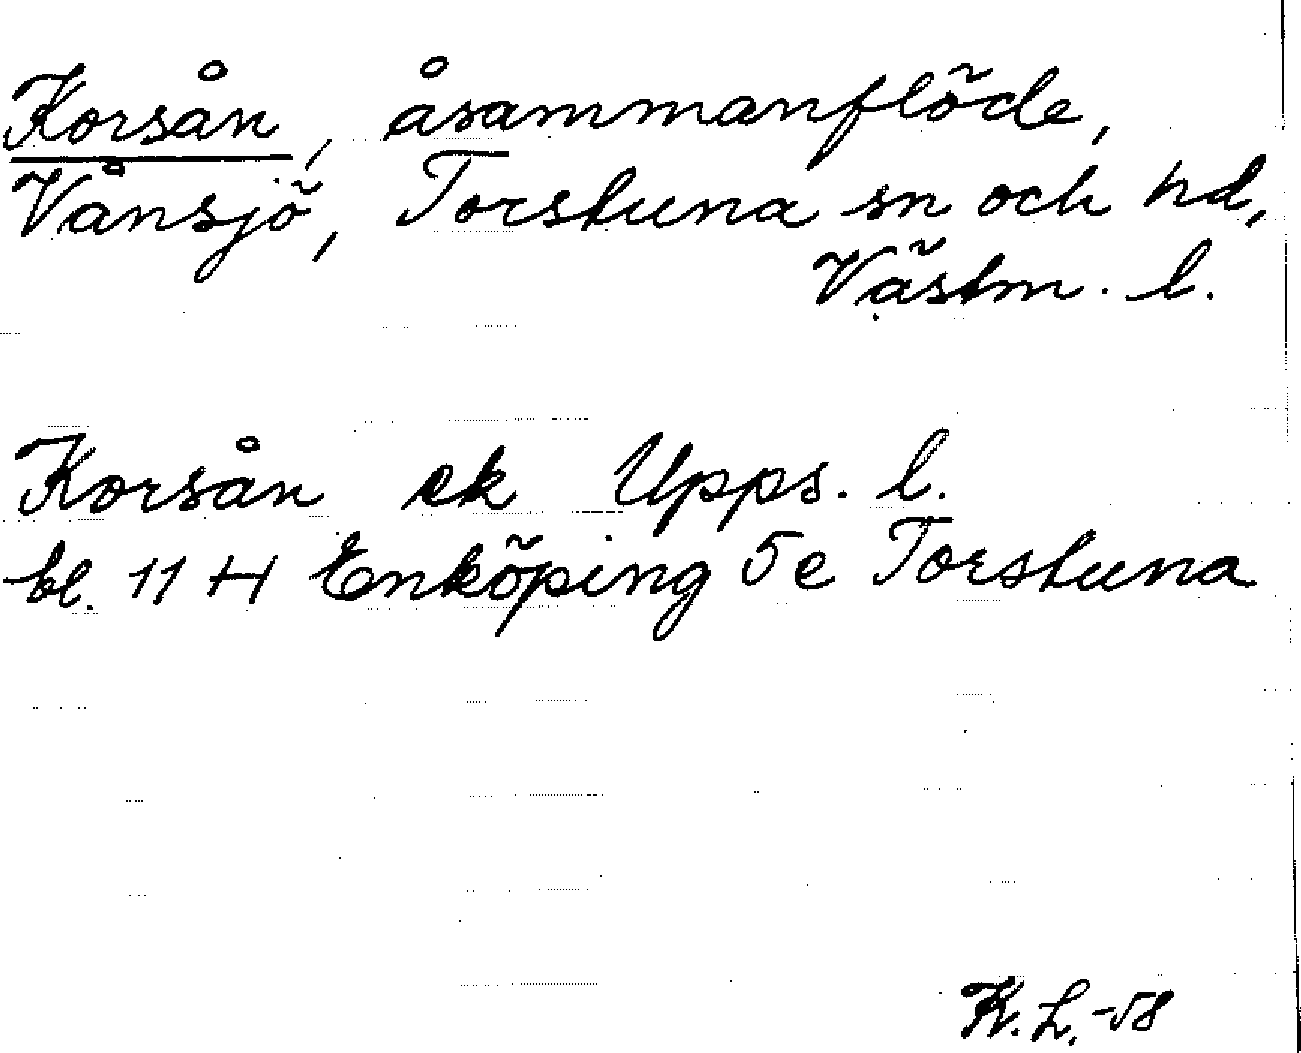 Korsån, åsammanflöde,
Vånsjö, Torstuna sn och hd,
Västm. l.
Korsån ek Upps. l.
bl. 11 H Enköping 5e Torstuna
K. L. -58